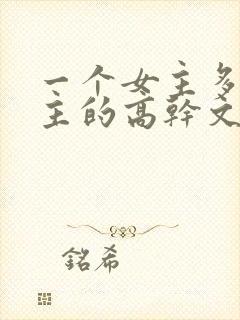 一个女主多
主的高幹文
銘希